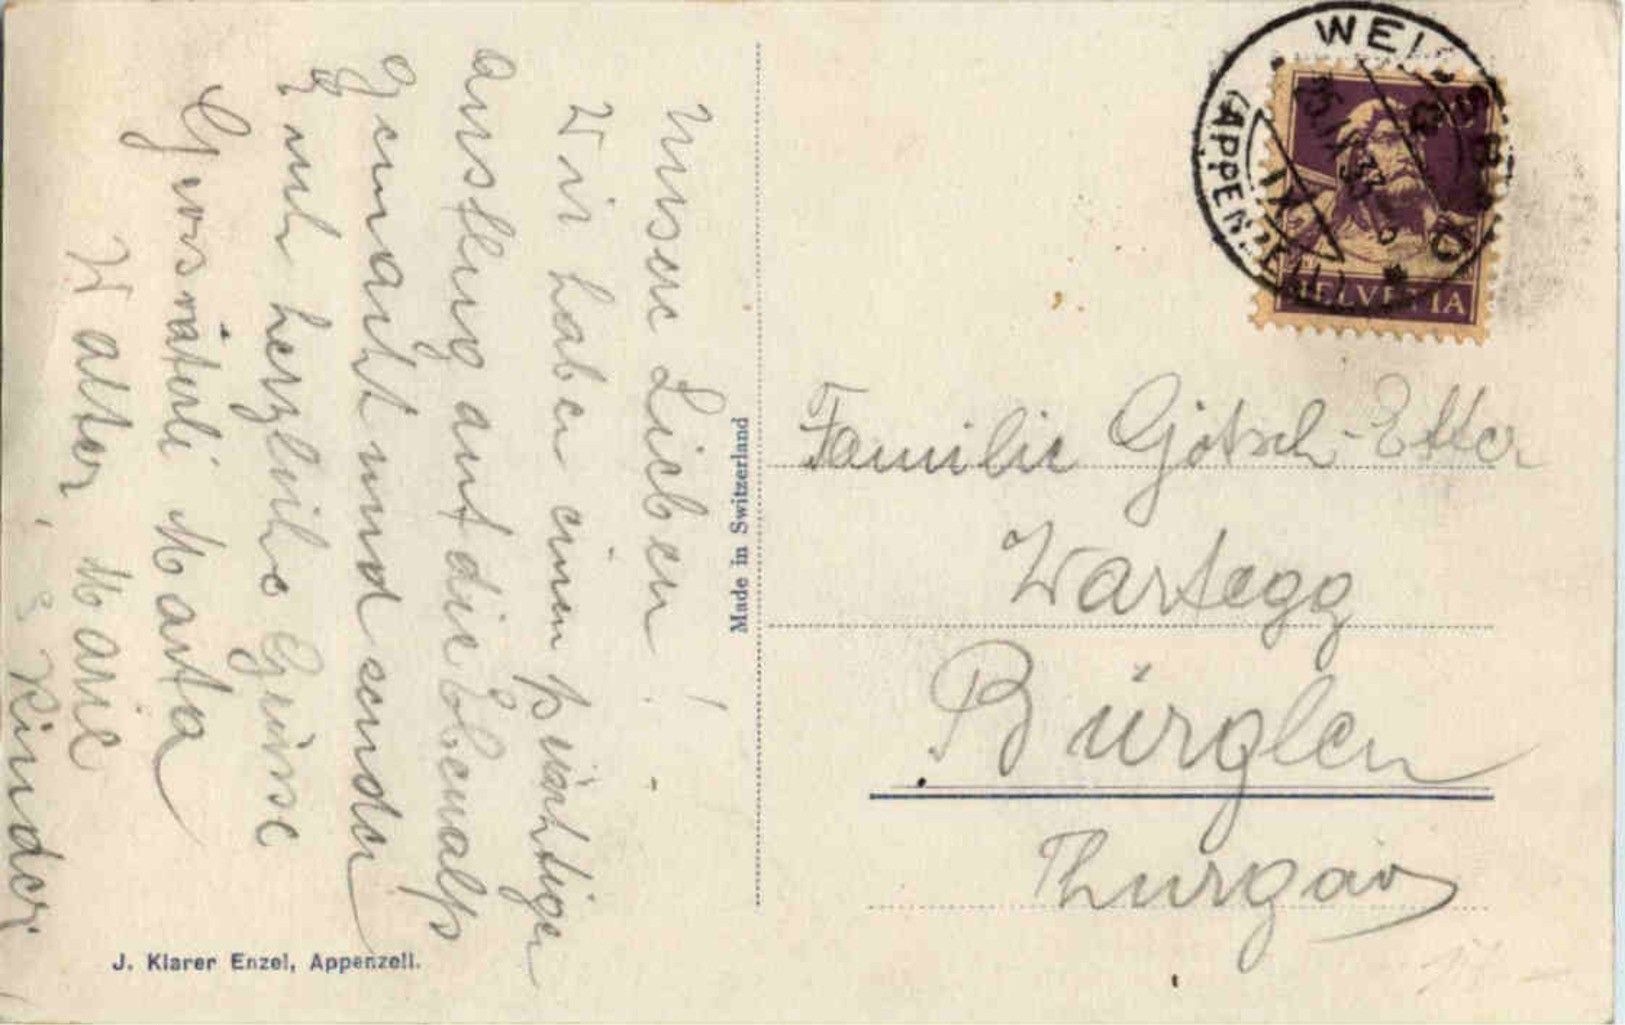 Unsere Lieben!
Wir haben einen prächtigen
Ausflug auf die Ebenalp
gemacht und senden
Euch herzliche Grüsse
Grossmüterli Marta
Walter, Marie
& Kinder.
Made in Switzerland
J. Klarer Enzel, Appenzell.
(APPENZELL)
HELVETIA
Familie Götsch-Etter
Wartegg
Bürglen
Thurgau